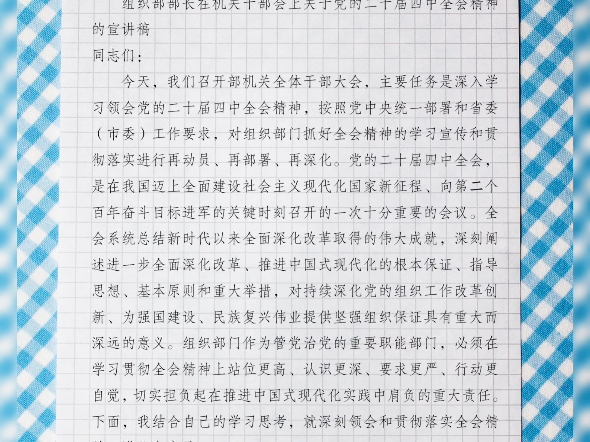 组织部部长在机关干部会上关于党的二十届四中全会精神
的宣讲稿
同志们：
今天，我们召开部机关全体干部大会，主要任务是深入学
习领会党的二十届四中全会精神，按照党中央统一部署和省委
（市委）工作要求，对组织部门抓好全会精神的学习宣传和贯
彻落实进行再动员、再部署、再深化。党的二十届四中全会，
是在我国迈上全面建设社会主义现代化国家新征程、向第二个
百年奋斗目标进军的关键时刻召开的一次十分重要的会议。全
会系统总结新时代以来全面深化改革取得的伟大成就，深刻阐
述进一步全面深化改革、推进中国式现代化的根本保证、指导
思想、基本原则和重大举措，对持续深化党的组织工作改革创
新、为强国建设、民族复兴伟业提供坚强组织保证具有重大而
深远的意义。组织部门作为管党治党的重要职能部门，必须在
学习贯彻全会精神上站位更高、认识更深、要求更严、行动更
自觉，切实担负起在推进中国式现代化实践中肩负的重大责任。
下面，我结合自己的学习思考，就深刻领会和贯彻落实全会精